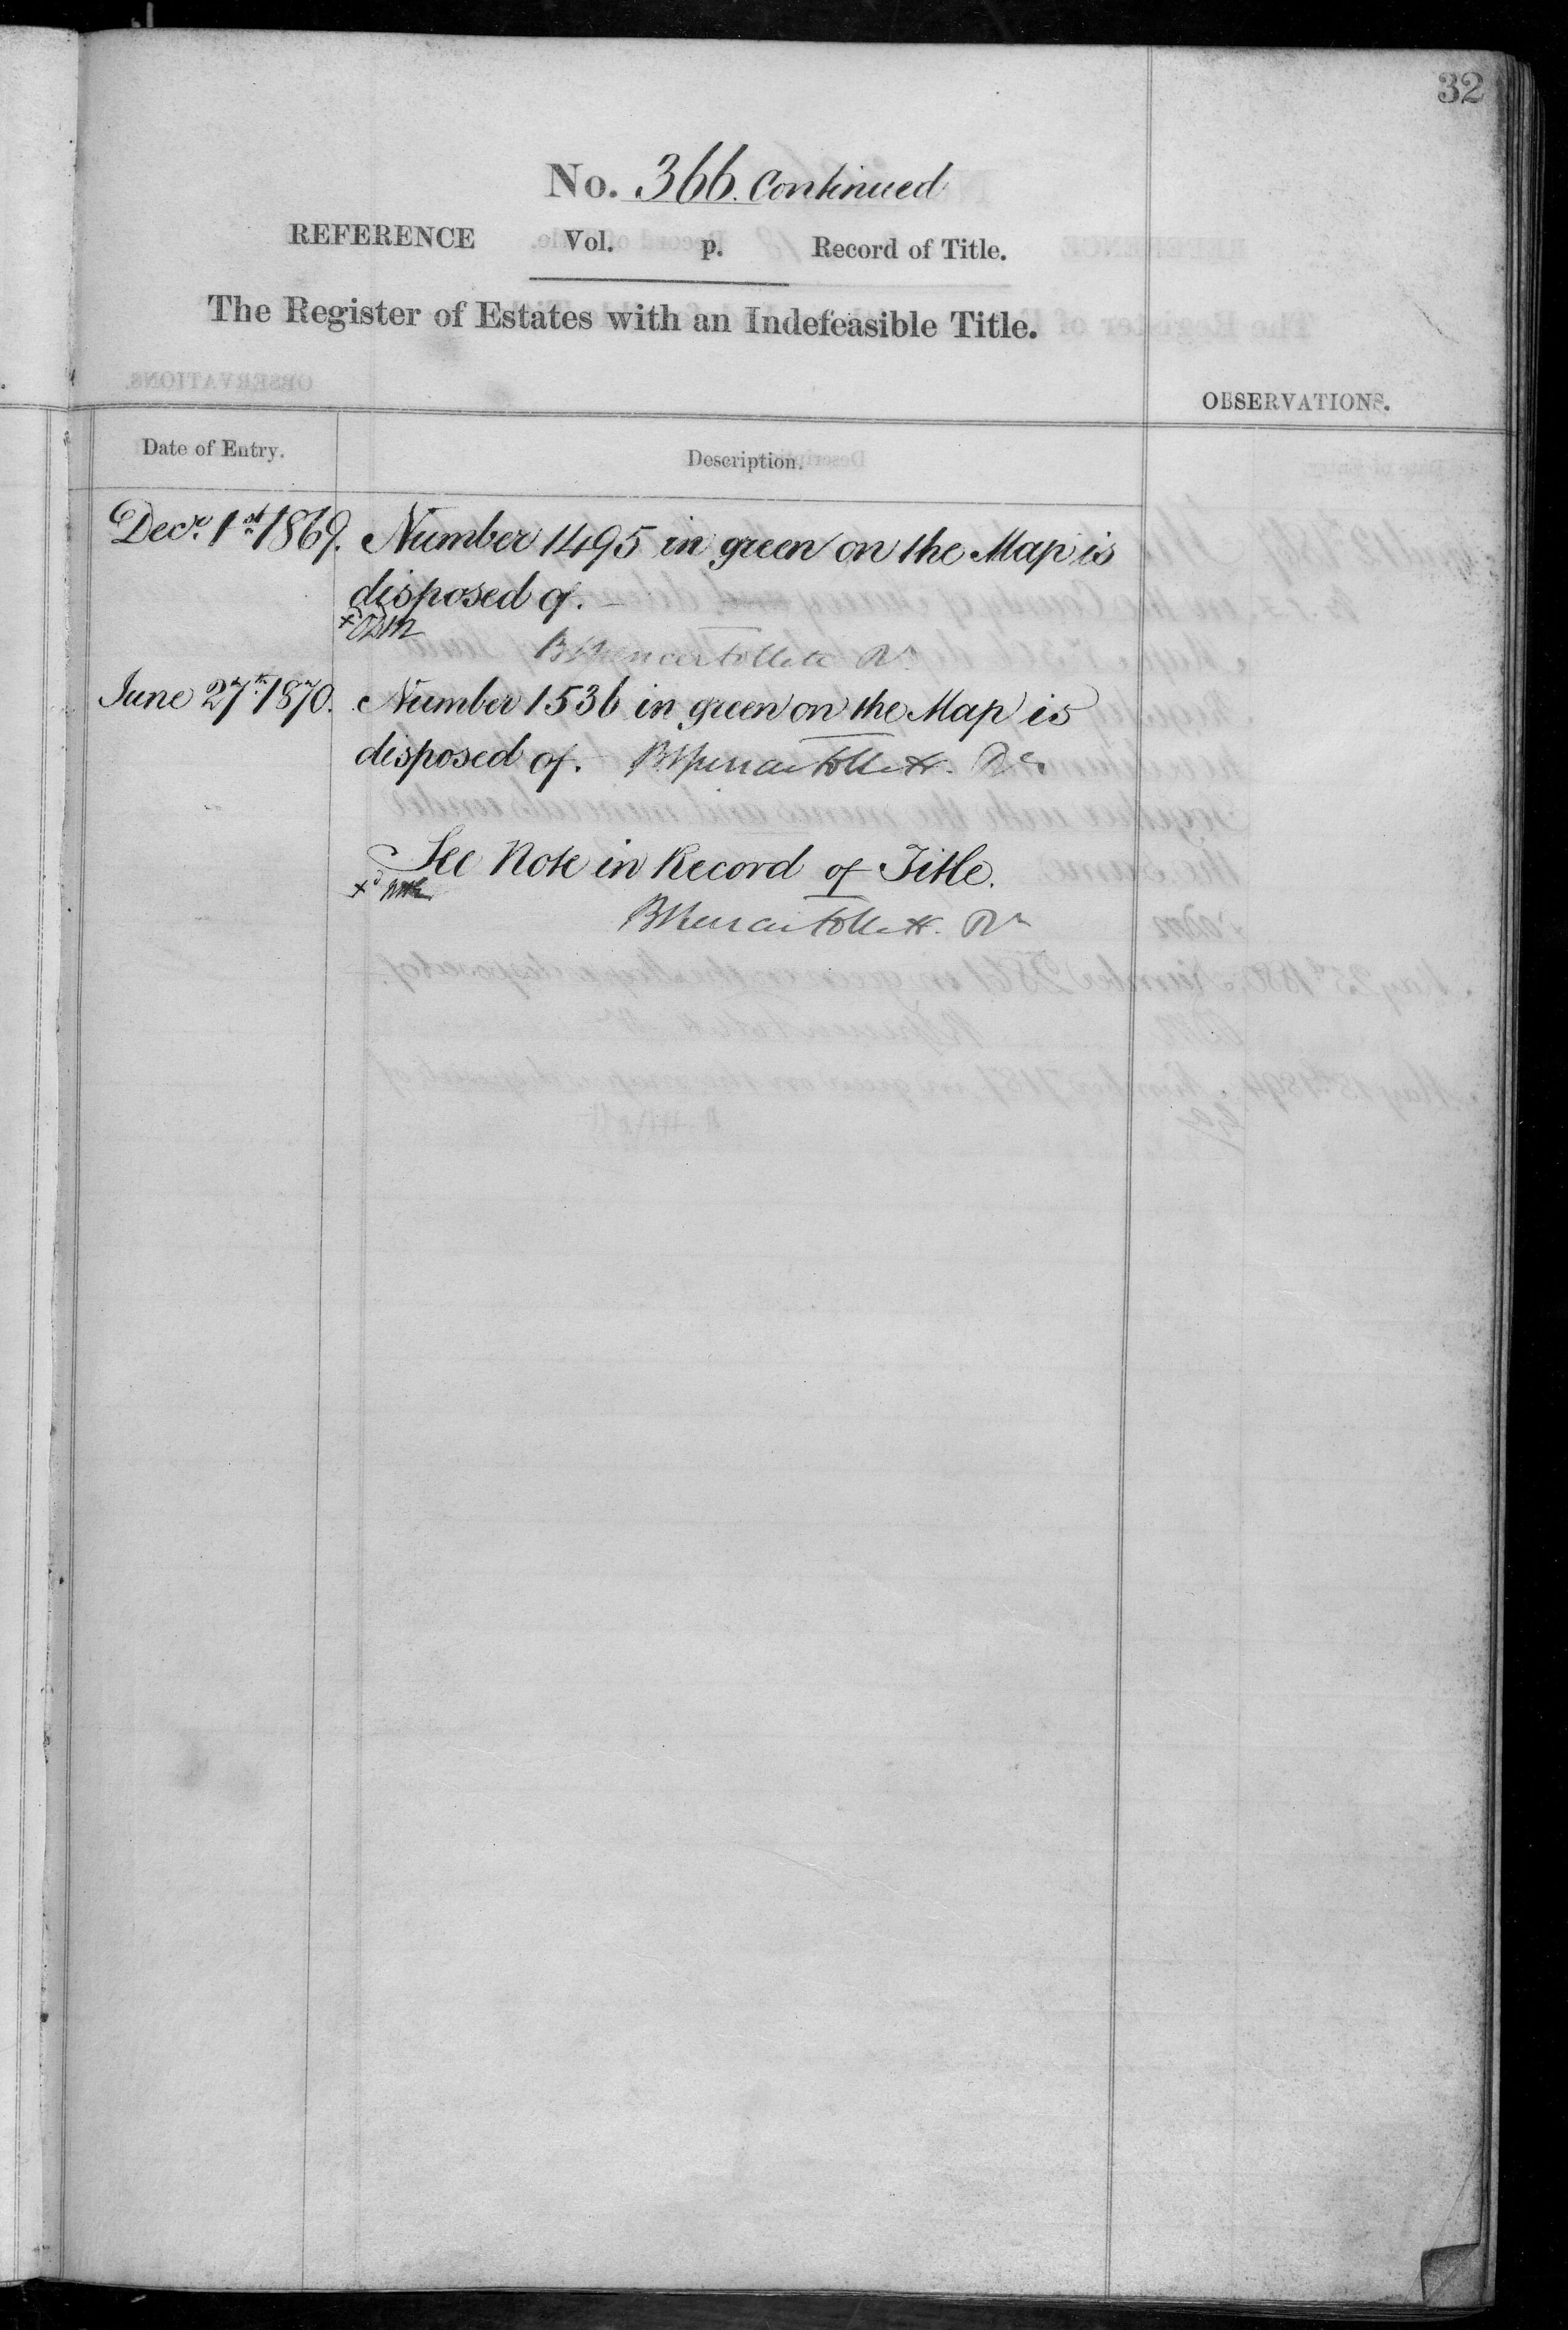 32
No. 366. Continued
REFERENCE Vol. p. Record of Title.
The Register of Estates with an Indefeasible Title.
OBSERVATIONS.
Date of Entry. Description.
Decr. 1st 1869. Number 1495 in green on the Map is
disposed of.
BSpencer Follett Rr.
June 27th 1870. Number 1536 in green on the Map is
disposed of. BSpencer Follett. Rr.
See Note in Record of Title.
BSpencer Follett. Rr